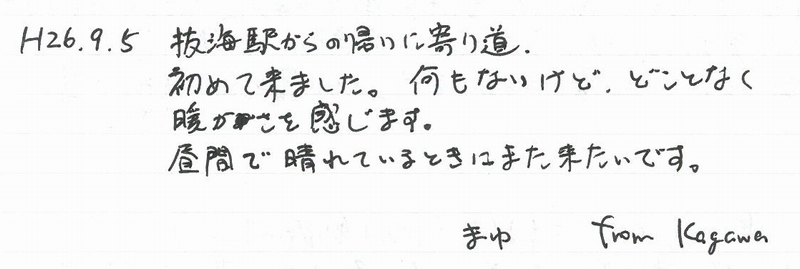 H26.9.5 抜海駅からの帰りに寄り道.
初めて来ました。何もないけど、どことなく
暖かさを感じます。
昼間で晴れているときにまた来たいです。
まゆ from Kagawa